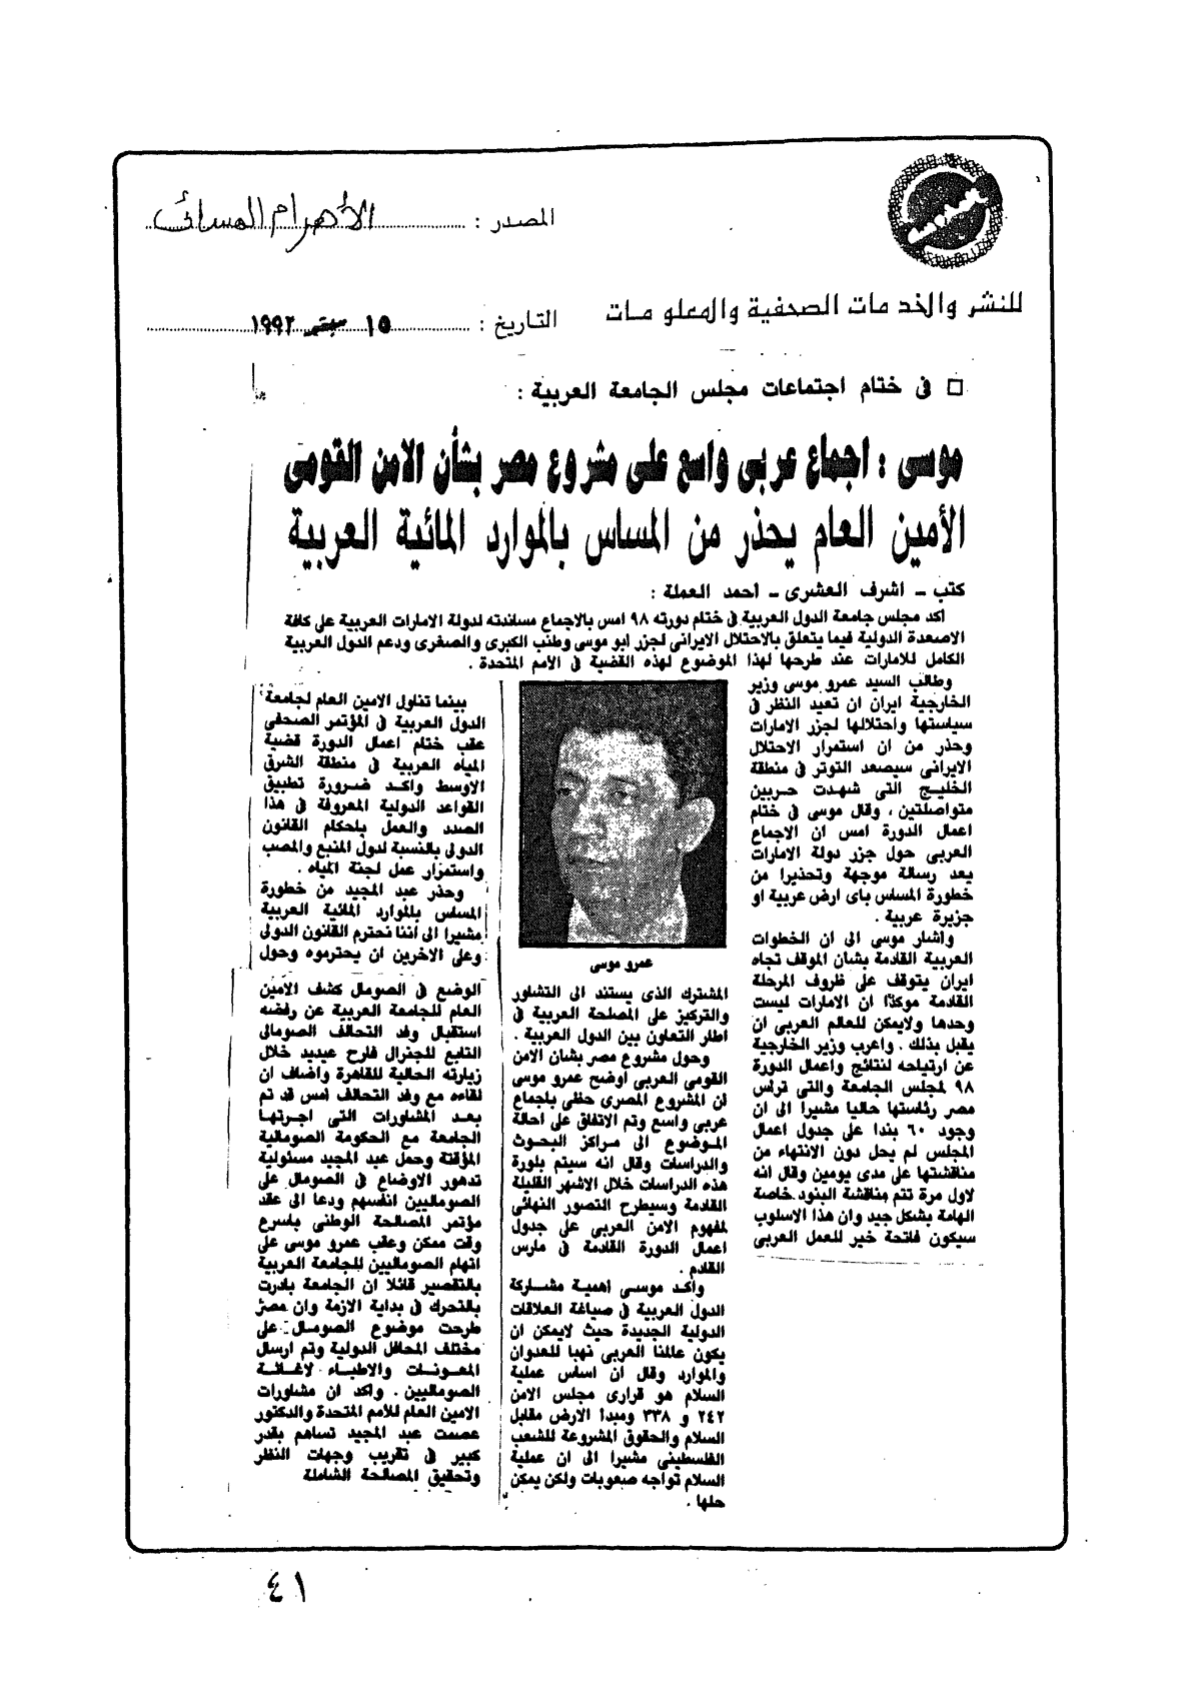 المصدر : الأهرام المسائى
للنشر والخدمات الصحفية والمعلومات
التاريخ : ١٥ سبتمبر ١٩٩٢
□ فى ختام اجتماعات مجلس الجامعة العربية :
موسى : اجماع عربى واسع على مشروع مصر بشأن الامن القومى
الأمين العام يحذر من المساس بالموارد المائية العربية
كتب - اشرف العشرى - احمد العملة :
اكد مجلس جامعة الدول العربية فى ختام دورته ٩٨ امس بالاجماع مساندته لدولة الامارات العربية على كافة
الاصعدة الدولية فيما يتعلق بالاحتلال الايرانى لجزر ابو موسى وطنب الكبرى والصغرى ودعم الدول العربية
الكامل للامارات عند طرحها لهذا الموضوع لهذه القضية فى الأمم المتحدة .
وطالب السيد عمرو موسى وزير
الخارجية ايران ان تعيد النظر فى
سياستها واحتلالها لجزر الامارات
وحذر من ان استمرار الاحتلال
الايرانى سيصعد التوتر فى منطقة
الخليج التى شهدت حربين
متواصلتين ، وقال موسى فى ختام
اعمال الدورة امس ان الاجماع
العربى حول جزر دولة الامارات
يعد رسالة موجهة وتحذيرا من
خطورة المساس باى ارض عربية او
جزيرة عربية .
واشار موسى الى ان الخطوات
العربية القادمة بشان الموقف تجاه
ايران يتوقف على ظروف المرحلة
القادمة موكدًا ان الامارات ليست
وحدها ولايمكن للعالم العربى ان
يقبل بذلك . واعرب وزير الخارجية
عن ارتياحه لنتائج واعمال الدورة
٩٨ لمجلس الجامعة والتى تراس
مصر رئاستها حاليا مشيرا الى ان
وجود ٦٠ بندا على جدول اعمال
المجلس لم يحل دون الانتهاء من
مناقشتها على مدى يومين وقال انه
لاول مرة تتم مناقشة البنود خاصة
الهامة بشكل جيد وان هذا الاسلوب
سيكون فاتحة خير للعمل العربى
عمرو موسى
المشترك الذى يستند الى التشاور
والتركيز على المصلحة العربية فى
اطار التعاون بين الدول العربية .
وحول مشروع مصر بشان الامن
القومى العربى أوضح عمرو موسى
ان المشروع المصرى حظى باجماع
عربى واسع وتم الاتفاق على احالة
الموضوع الى مراكز البحوث
والدراسات وقال انه سيتم بلورة
هذه الدراسات خلال الاشهر القليلة
القادمة وسيطرح التصور النهائى
لمفهوم الامن العربى على جدول
اعمال الدورة القادمة فى مارس
القادم .
واكد موسى اهمية مشاركة
الدول العربية فى صياغة العلاقات
الدولية الجديدة حيث لايمكن ان
يكون عالمنا العربى نهبا للعدوان
والموارد وقال ان اساس عملية
السلام هو قرارى مجلس الامن
٢٤٢ و ٣٣٨ ومبدا الارض مقابل
السلام والحقوق المشروعة للشعب
الفلسطينى مشيرا الى ان عملية
السلام تواجه صعوبات ولكن يمكن
حلها .
بينما تناول الامين العام لجامعة
الدول العربية فى المؤتمر الصحفى
عقب ختام اعمال الدورة قضية
المياه العربية فى منطقة الشرق
الاوسط واكد ضرورة تطبيق
القواعد الدولية المعروفة فى هذا
الصدد والعمل باحكام القانون
الدولى بالنسبة لدول المنبع والمصب
واستمرار عمل لجنة المياه .
وحذر عبد المجيد من خطورة
المساس بالموارد المائية العربية
مشيرا الى أننا نحترم القانون الدولى
وعلى الاخرين ان يحترموه وحول
الوضع فى الصومال كشف الأمين
العام للجامعة العربية عن رفضه
استقبال وفد التحالف الصومالى
التابع للجنرال فارح عيديد خلال
زيارته الحالية للقاهرة واضاف ان
لقاءه مع وفد التحالف امس قد تم
بعد المشاورات التى اجرتها
الجامعة مع الحكومة الصومالية
المؤقتة وحمل عبد المجيد مسئولية
تدهور الاوضاع فى الصومال على
الصوماليين انفسهم ودعا الى عقد
مؤتمر المصالحة الوطنى باسرع
وقت ممكن وعقب عمرو موسى على
اتهام الصوماليين للجامعة العربية
بالتقصير قائلا ان الجامعة بادرت
بالتحرك فى بداية الازمة وان مصر
طرحت موضوع الصومال على
مختلف المحافل الدولية وتم ارسال
المعونات والاطباء لاغاثة
الصوماليين . واكد ان مشاورات
الامين العام للأمم المتحدة والدكتور
عصمت عبد المجيد تساهم بقدر
كبير فى تقريب وجهات النظر
وتحقيق المصالحة الشاملة
٤١